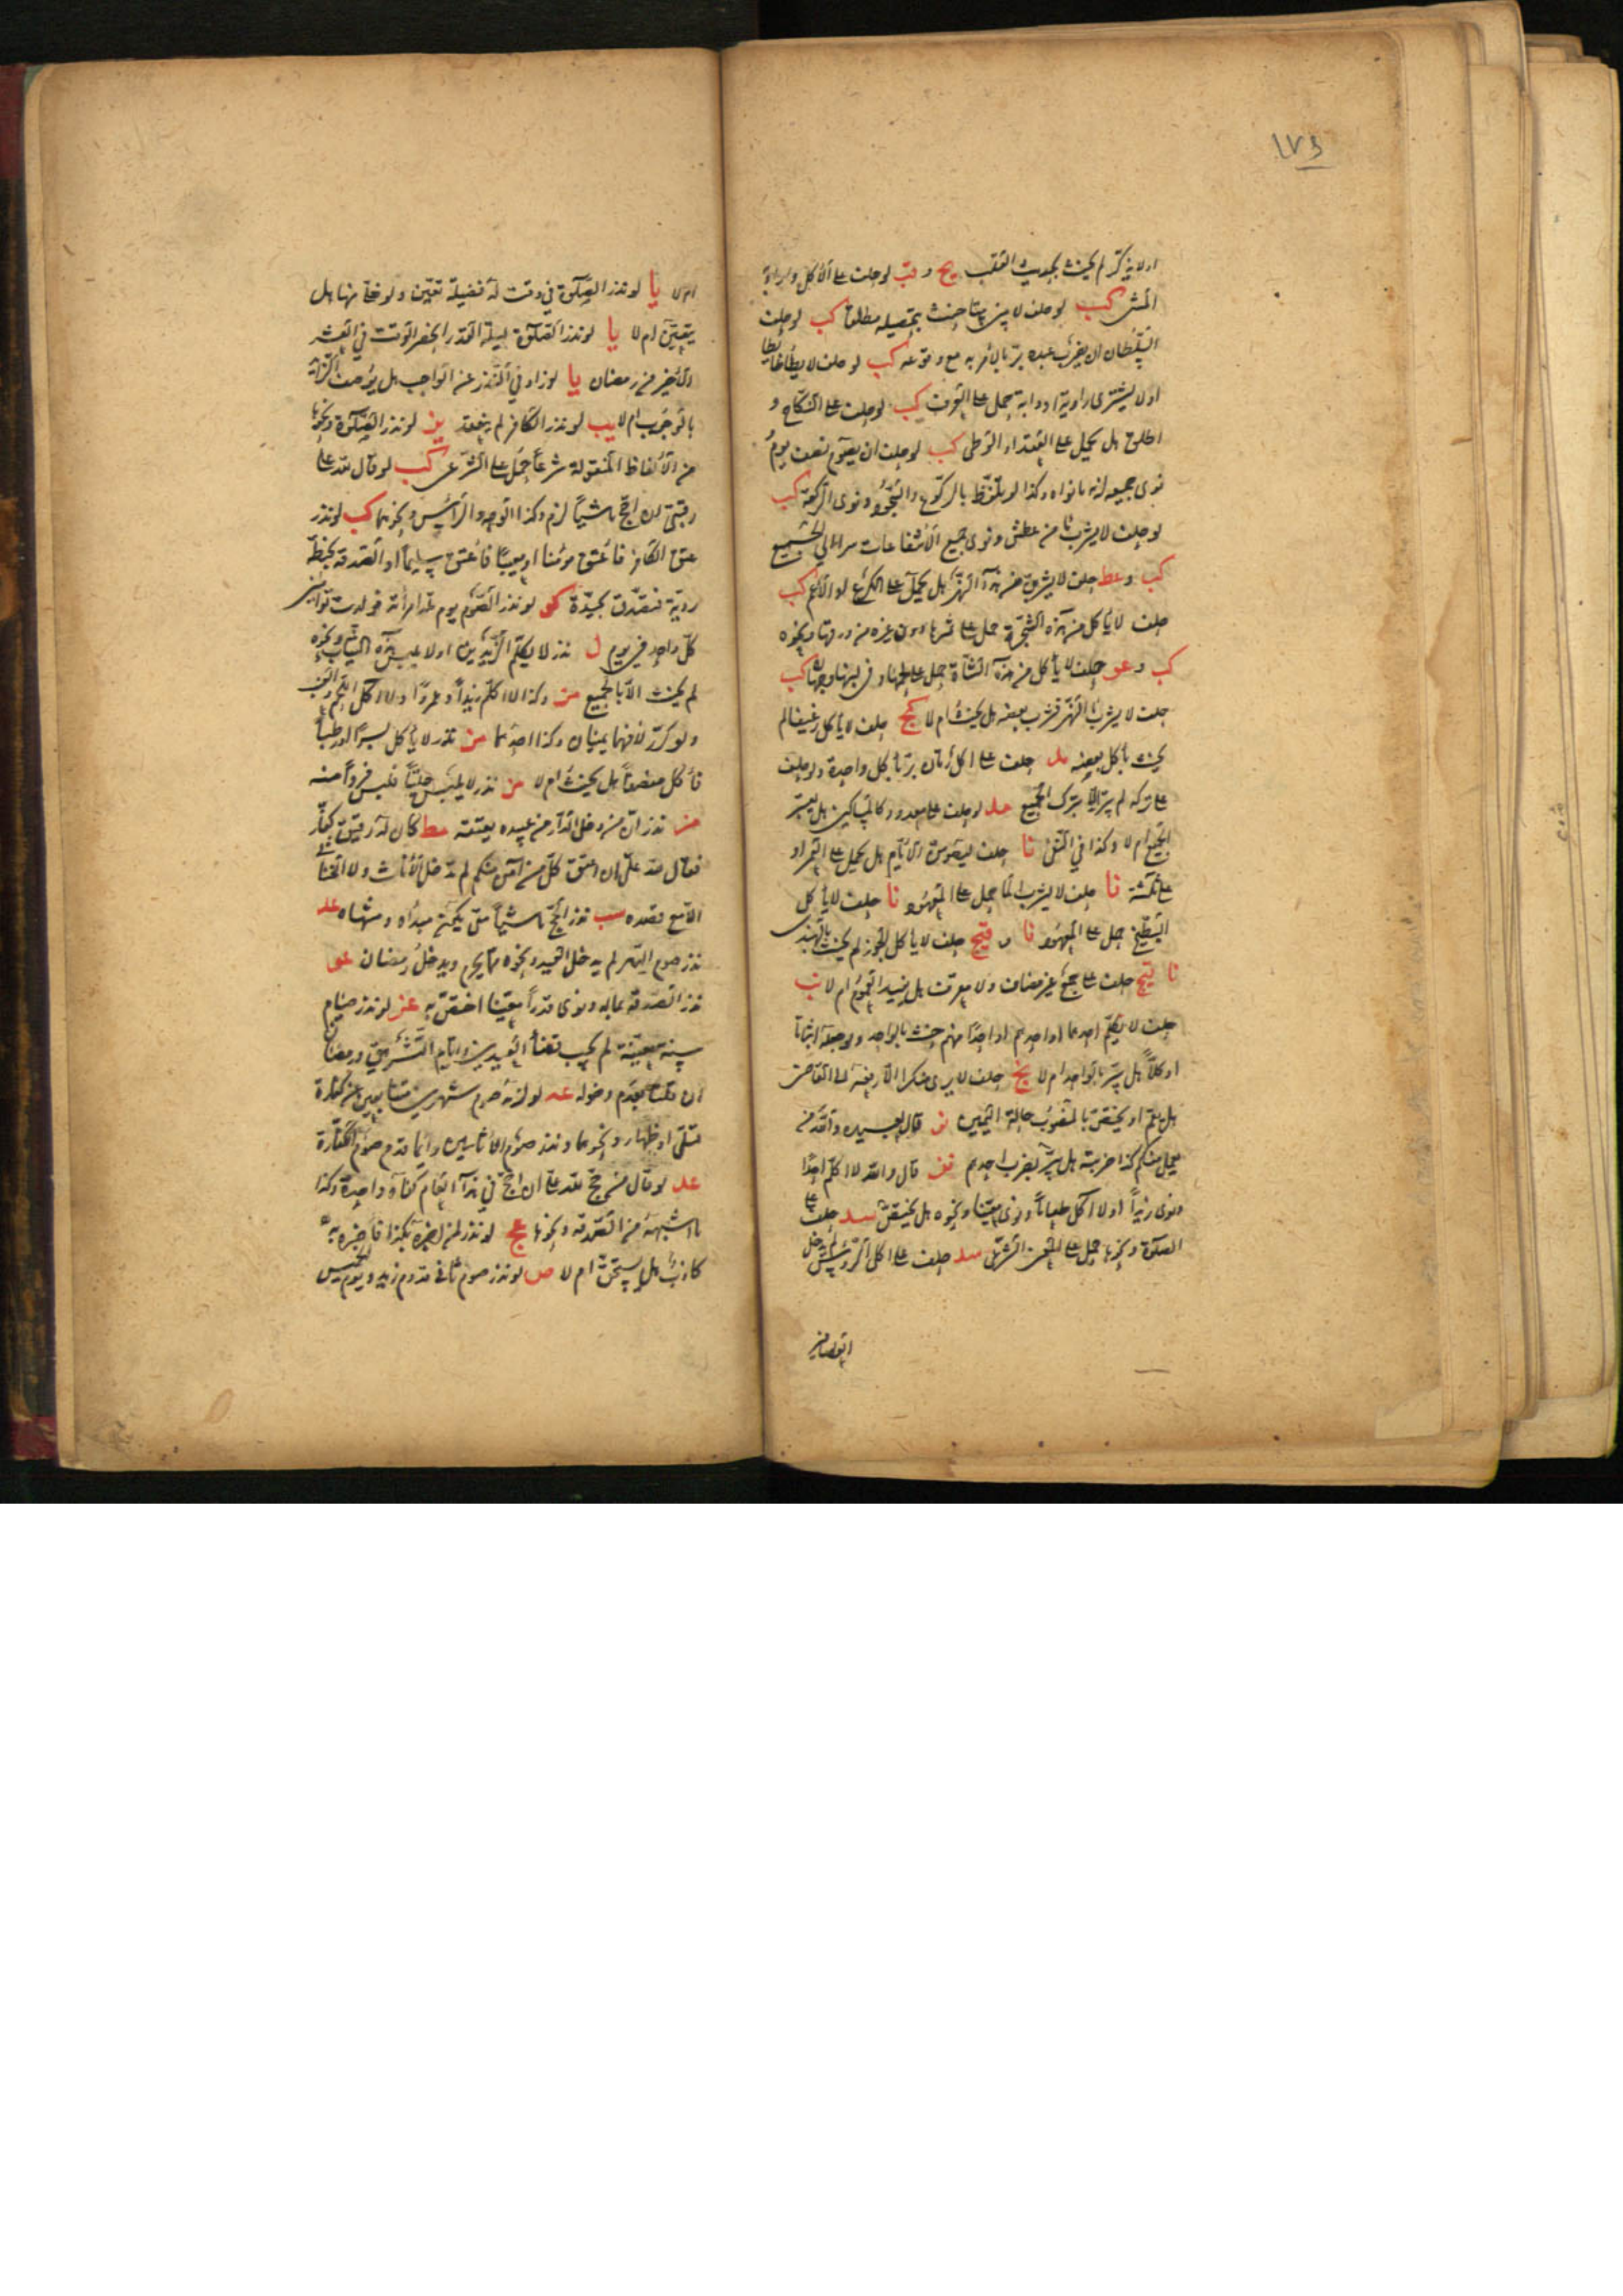 ١٧٤
او لا يذكر لم يحنث بحديث القلب يج و قب لو حلف على الأكل و ارادة
المشي كب لو حلف لا يبني بيتا حنث بتحصيله مطلقا كب لو حلف
السلطان ان يضرب عبده برّ بالأمر به مع وقوعه كب لو حلف لا يطأ
او لا يشتري راوية او دابة حمل على العرف كب لو حلف على النكاح و
اطلق هل يحمل على العقد او الوطي كب لو حلف ان يصوم نصف يوم
نوى جميعه لزمه ما نواه وكذا لو تلفظ بالركوع والسجود ونوى الركعة كب
لو حلف لا يشرب من عطش ونوى جميع الانتفاعات سرى الى الجميع
كب و عط حلف لا يشرب من هذا النهر هل يحمل على الكرع او الأعم كب
حلف لا يأكل من هذه الشجرة حمل على ثمرها دون غيره من ورقها ونحوه
كب و عو حلف لا يأكل من هذه الشاة حمل على لحمها و في لبنها وجهان كب
حلف لا يشرب النهر فشرب بعضه هل يحنث ام لا كج حلف لا يأكل رغيفا لم
يحنث بأكل بعضه مد حلف على اكل رمان برّ بأكل واحدة ولو حلف
على تركه لم يبرّ إلا بترك الجميع مد لو حلف على معدود كالمساكين هل يعتبر
الجمع ام لا وكذا في النفي نا حلف ليصومن الأيام هل يحمل على العمر او
على ثلثة نا حلف لا يشرب الما حمل على المعهود نا حلف لا يأكل
البطيخ حمل على المعهود نا و قيج حلف لا يأكل الجوز لم يحنث بالهندي
نا قيج حلف على جمع غير مضاف ولا معرف هل يفيد العموم ام لا نب
حلف لا يكلم احدهما او احدهم او احدا منهم حنث بالواحد ولو جعله اثباتا
او كلا هل يبر بالواحد ام لا نج حلف لا يرى منكرا الا رفعه الى القاضي
هل يعم او يختص بالمنصوب حالة اليمين نو قال لعبيده والله من
يحمل منكم كذا ضربته هل يبر بضرب احدهم نف قال والله لا اكلم احدا
ونوى زيدا او لا اكل طعاما ونوى معينا ونحوه هل يختص سد حلف على
الصلوة ونحوها حمل على الصحيح الشرعي سد حلف على اكل الرؤس لم يدخل
العصافير
ام لا يا لو نذر الصلوة في وقت له فضيلة تعين ولو خلا منها هل
يتعين ام لا يا لو نذر الصلوة ليلة القدر انحصر الوقت في العشر
الأخير من رمضان يا لو زاد في النذر عن الواجب هل يوصف الزائد
بالوجوب ام لا يب لو نذر الكافر لم ينعقد يز لو نذر الصلوة ونحوها
من الألفاظ المنقولة شرعا حمل على الشرعي كب لو قال لله على
رقبتي ان احج ماشيا لزم وكذا الوجه والرأس ونحوهما كب لو نذر
عتق الكافر فأعتق مؤمنا او معيبا فأعتق سليما او الصدقة بحنطة
رديّة فتصدق بجيدة كو لو نذر الصوم يوم تلد امرأته فولدت توأمين
كل واحد في يوم ل نذر لا يكلم الزيدين او لا يلبس هذه الثياب ونحوه
لم يحنث الا بالجميع من وكذا لا اكلم زيدا وعمروا ولا اكل اللحم والعنب
ولو كرر لا فهما يمينان وكذا احدهما من نذر لا يأكل بسرا او رطبا
فأكل منصفا هل يحنث ام لا من نذر لا يلبس حليا فلبس فروا منه
من نذر ان من دخل الدار من عبيده يعتقه مط كان له رقيق كفار
فقال لله علي ان اعتق كل من آمن منكم لم تدخل الأناث ولا الخناثى
الا مع قصده سب نذر الحج ماشيا متى يحكم مبدأه ومنتهاه عد
نذر صوم الدهر لم يدخل العيد ونحوه مما يحرم ويدخل رمضان عو
نذر الصدقة بماله ونوى قدرا معينا اختص به عز لو نذر صيام
سنة معينة لم يجب قضاء العيدين وايام التشريق ورمضان
ان قلنا بعدم دخوله عد لو لزمه صوم شهرين متتابعين عن كفارة
قتل او ظهار ونحوهما ونذر صوم الأثانين دائما قدم صوم الكفارة
عد لو قال من حج لله علي ان احج في هذا العام كفاه واحدة وكذا
ما اشبهه من الصدقة ونحوها عج لو نذر لمن اخبره بكذا فاخبره به
كاذبا هل يستحق ام لا ص لو نذر صوم ثاني قدوم زيد ويوم الخميس